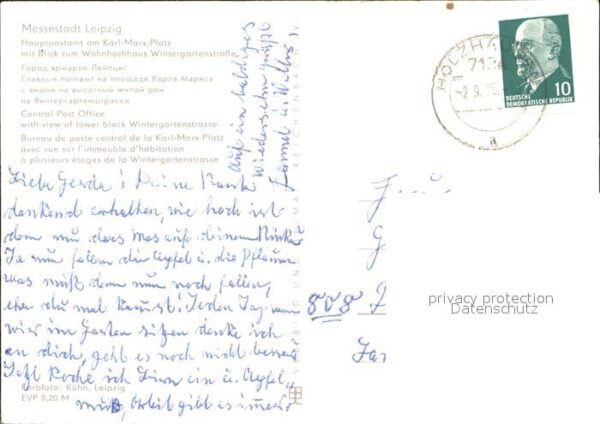 Messestadt Leipzig
Hauptpostamt am Karl-Marx-Platz
mit Blick zum Wohnhochhaus Wintergartenstraße
Город ярмарок Лейпциг
Главный почтамт на площади Карла Маркса
с видом на высотный жилой дом
на Винтергартенштрассе
Central Post Office
with view of tower block Wintergartenstrasse
Bureau de poste central de la Karl-Marx-Platz
avec vue sur l'immeuble d'habitation
à plusieurs étages de la Wintergartenstrasse
Liebe Gerda! Deine Karte
dankend erhalten, wie hoch ist
denn nun das Mas auf deinem
Ja nun fallen die Äpfel u. die Pflaum
was muß denn nun noch fallen,
ehe du mal kommst! Jeden Tag wenn
wir im Garten sitzen denke ich
an dich, geht es noch nicht besser
Jetzt koche ich Birn ein u. Apfel
muß, Arbeit gibt es immer.
Auf ein baldiges
Wiedersehn grüßt
HOLZHAUSEN
712
10
DEUTSCHE
DEMOKRATISCHE REPUBLIK
808
privacy protection
Datenschutz
Farbfoto: Kühn, Leipzig
EVP 0,20 M